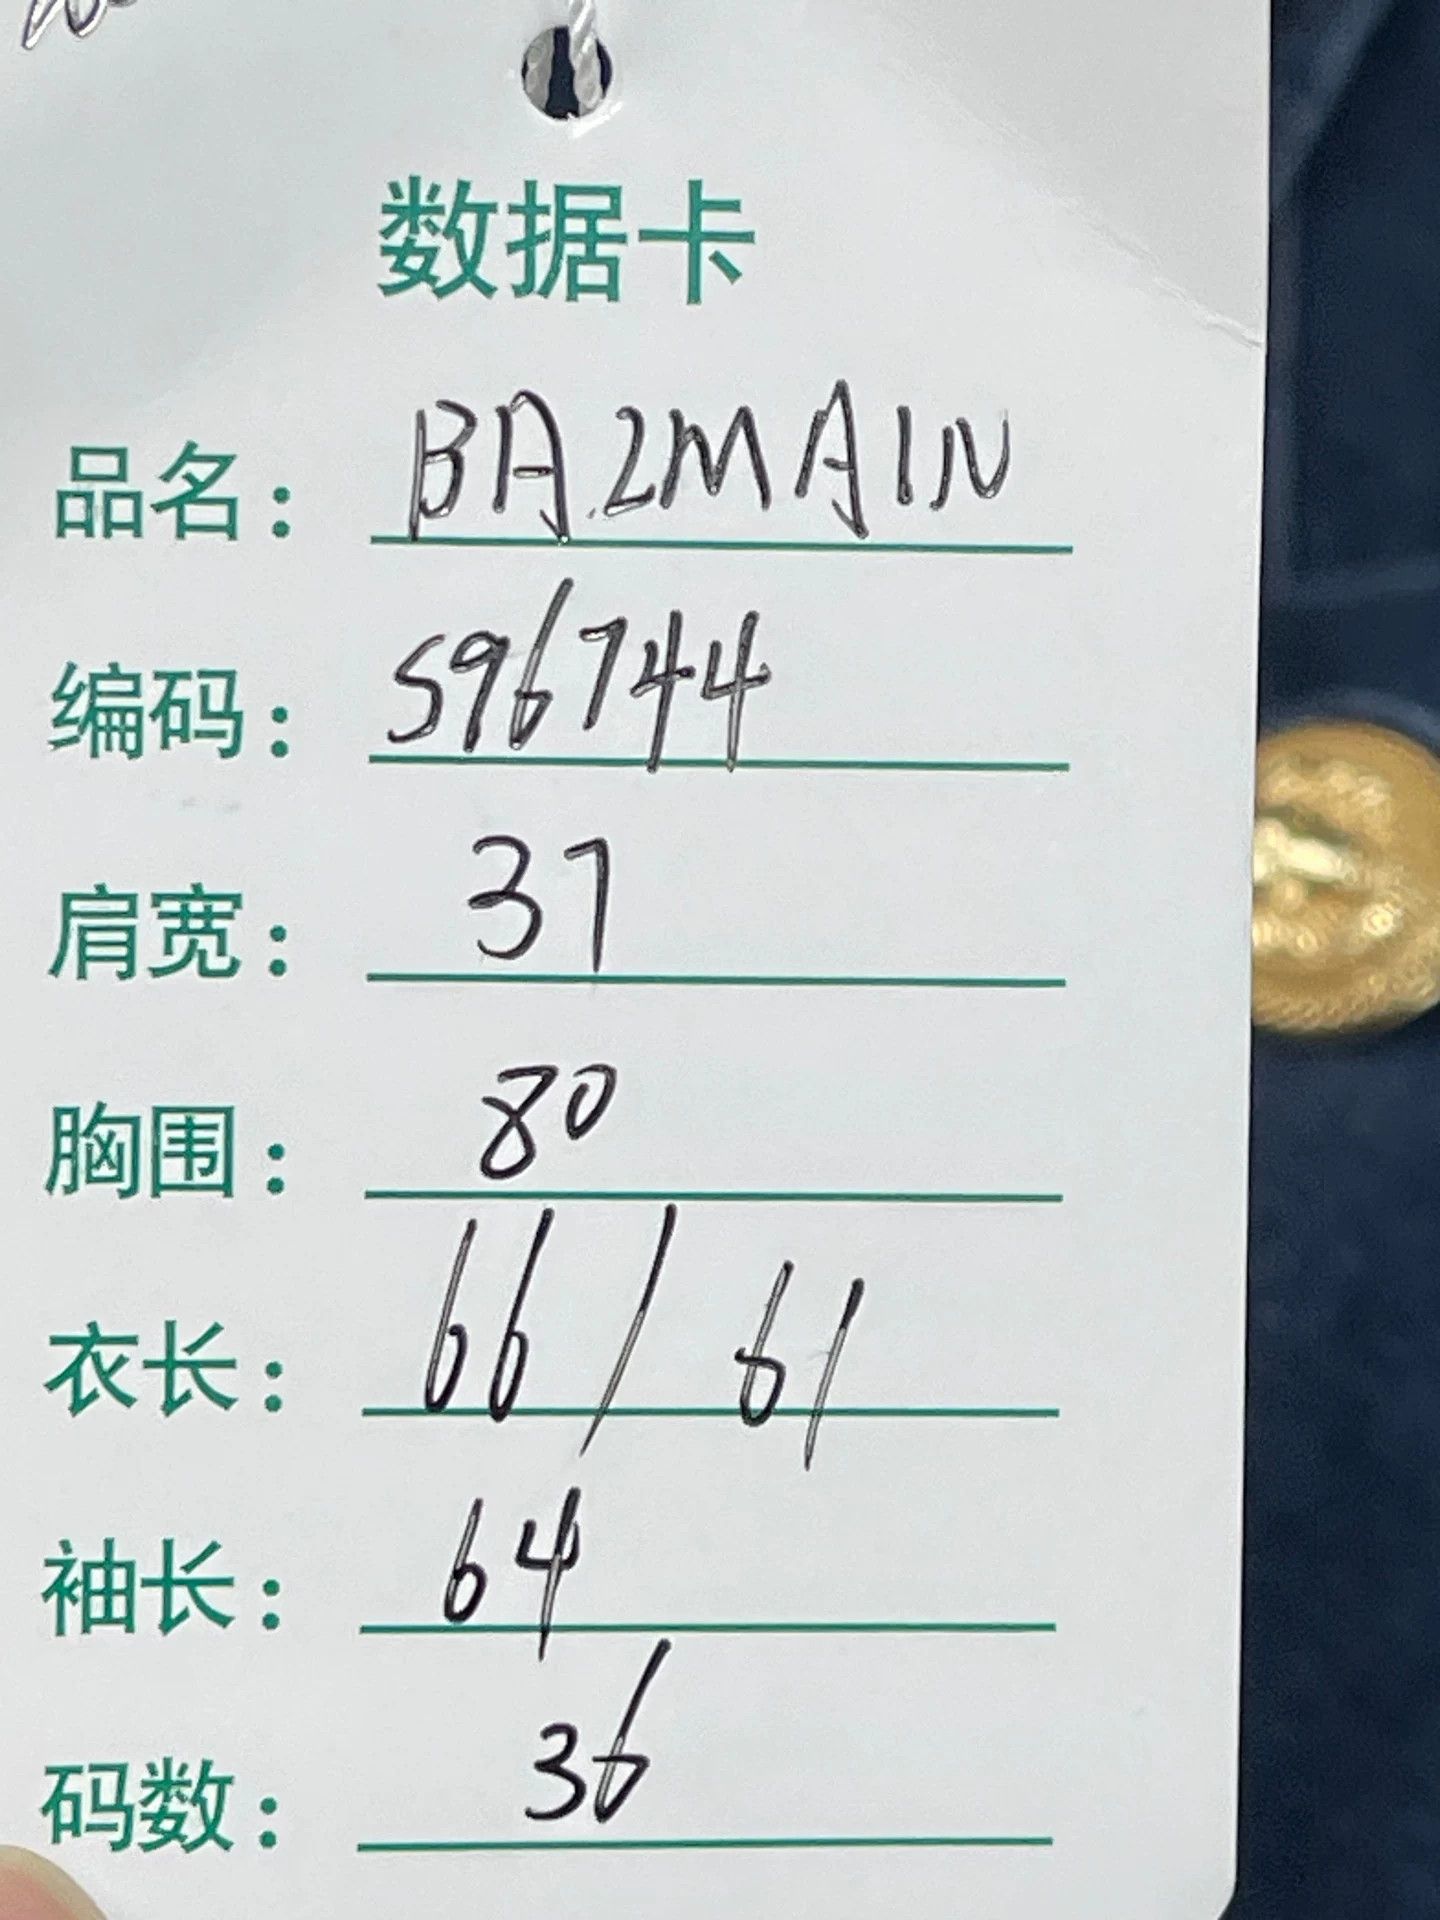 数据卡
品名: BALMAIN
编码: S96744
肩宽: 37
胸围: 80
衣长: 66/61
袖长: 64
码数: 36